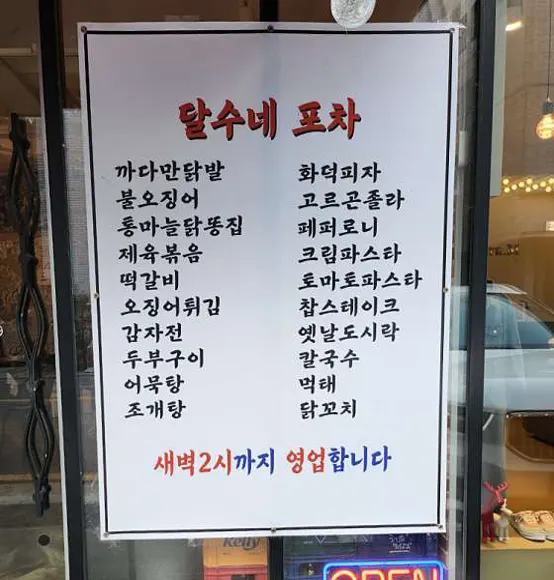 달수네 포차
까다만닭발
불오징어
통마늘닭똥집
제육볶음
떡갈비
오징어튀김
감자전
두부구이
어묵탕
조개탕
화덕피자
고르곤졸라
페퍼로니
크림파스타
토마토파스타
찹스테이크
옛날도시락
칼국수
먹태
닭꼬치
새벽2시까지 영업합니다
Kelly
OPEN